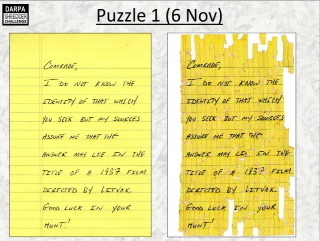 DARPA
SHREDDER
CHALLENGE
Puzzle 1 (6 Nov)
COMRADE,
I DO NOT KNOW THE
IDENTITY OF THAT WHICH
YOU SEEK BUT MY SOURCES
ASSURE ME THAT THE
ANSWER MAY LIE IN THE
TITLE OF A 1937 FILM
DIRECTED BY LITVAK.
GOOD LUCK IN YOUR
HUNT!
COMRADE,
I DO NOT KNOW THE
IDENTITY OF THAT WHICH
YOU SEEK BUT MY SOURCES
ASSURE ME THAT THE
ANSWER MAY LIE IN THE
TITLE OF A 1937 FILM
DIRECTED BY LITVAK.
GOOD LUCK IN YOUR
HUNT!